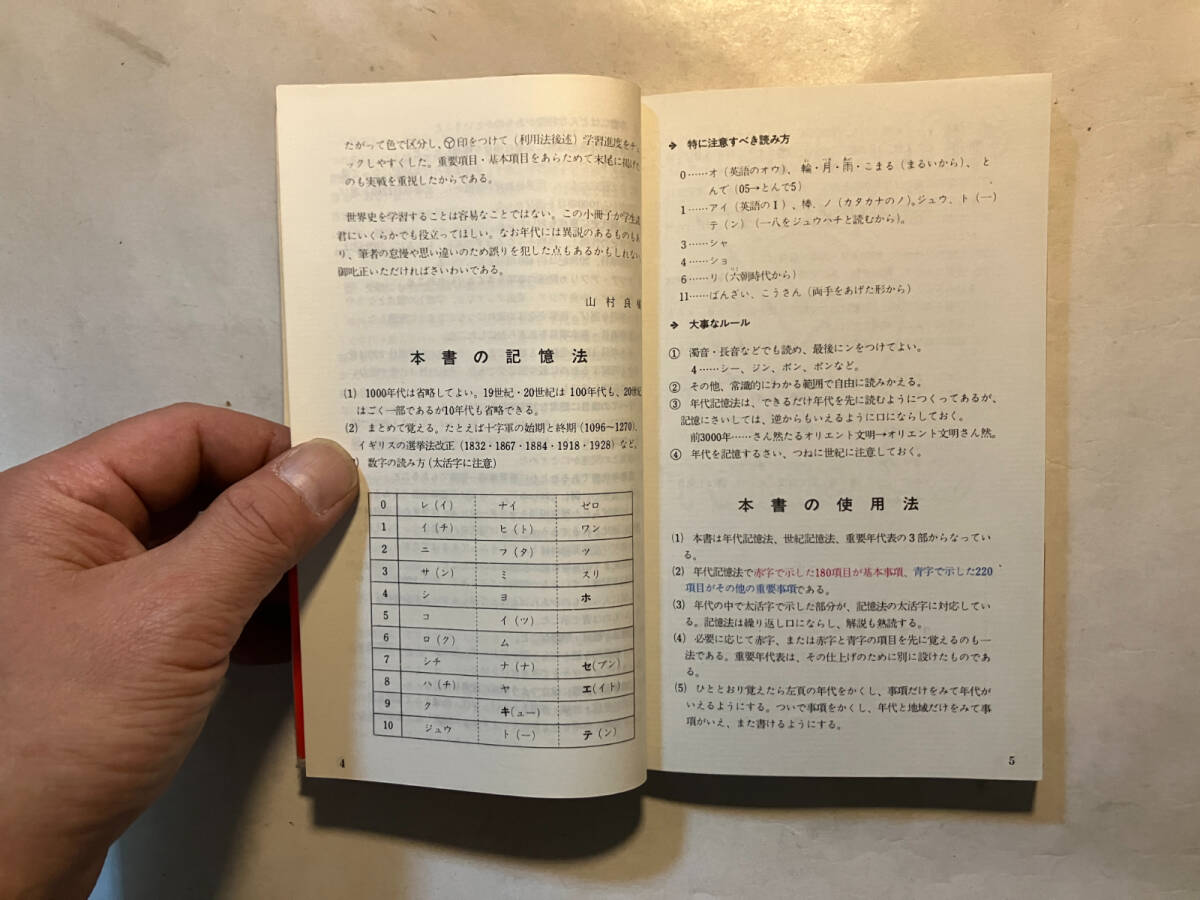 たがって色で区分し、Ⓨ印をつけて（利用法後述）学習進度をチェ
ックしやすくした。重要項目・基本項目をあらためて末尾に掲げた
のも実戦を重視したからである。
世界史を学習することは容易なことではない。この小冊子が学生諸
君にいくらかでも役立ってほしい。なお年代には異説のあるものもあ
り、筆者の怠慢や思い違いのため誤りを犯した点もあるかもしれない
御叱正いただければさいわいである。
山村良
本書の記憶法
(1) 1000年代は省略してよい。19世紀・20世紀は100年代も、20世紀
はごく一部であるが10年代も省略できる。
(2) まとめて覚える。たとえば十字軍の始期と終期（1096～1270）、
イギリスの選挙法改正（1832・1867・1884・1918・1928）など。
) 数字の読み方（太活字に注意）
0 レ（イ） ナイ ゼロ
1 イ（チ） ヒ（ト） ワン
2 ニ フ（タ） ツ
3 サ（ン） ミ スリ
4 シ ヨ ホ
5 コ イ（ツ）
6 ロ（ク） ム
7 シチ ナ（ナ） セ（ブン）
8 ハ（チ） ヤ エ（イト）
9 ク キ（ュー）
10 ジュウ ト（ー） テ（ン）
4
→ 特に注意すべき読み方
0……オ（英語のオウ）、輪・月・雨・こまる（まるいから）、と
んで（05→とんで5）
1……アイ（英語のI）、棒、ノ（カタカナのノ）。ジュウ、ト（ー）
テ（ン）（一八をジュウハチと読むから）。
3……シャ
4……ショ
6……リ（六朝時代から）
11……ばんざい、こうさん（両手をあげた形から）
→ 大事なルール
① 濁音・長音などでも読め、最後にンをつけてよい。
4……シー、ジン、ボン、ポンなど。
② その他、常識的にわかる範囲で自由に読みかえる。
③ 年代記憶法は、できるだけ年代を先に読むようにつくってあるが、
記憶にさいしては、逆からもいえるように口にならしておく。
前3000年……さん然たるオリエント文明→オリエント文明さん然。
④ 年代を記憶するさい、つねに世紀に注意しておく。
本書の使用法
(1) 本書は年代記憶法、世紀記憶法、重要年代表の3部からなってい
る。
(2) 年代記憶法で赤字で示した180項目が基本事項、青字で示した220
項目がその他の重要事項である。
(3) 年代の中で太活字で示した部分が、記憶法の太活字に対応してい
る。記憶法は繰り返し口にならし、解説も熟読する。
(4) 必要に応じて赤字、または赤字と青字の項目を先に覚えるのも一
法である。重要年代表は、その仕上げのために別に設けたものであ
る。
(5) ひととおり覚えたら左頁の年代をかくし、事項だけをみて年代が
いえるようにする。ついで事項をかくし、年代と地域だけをみて事
項がいえ、また書けるようにする。
5